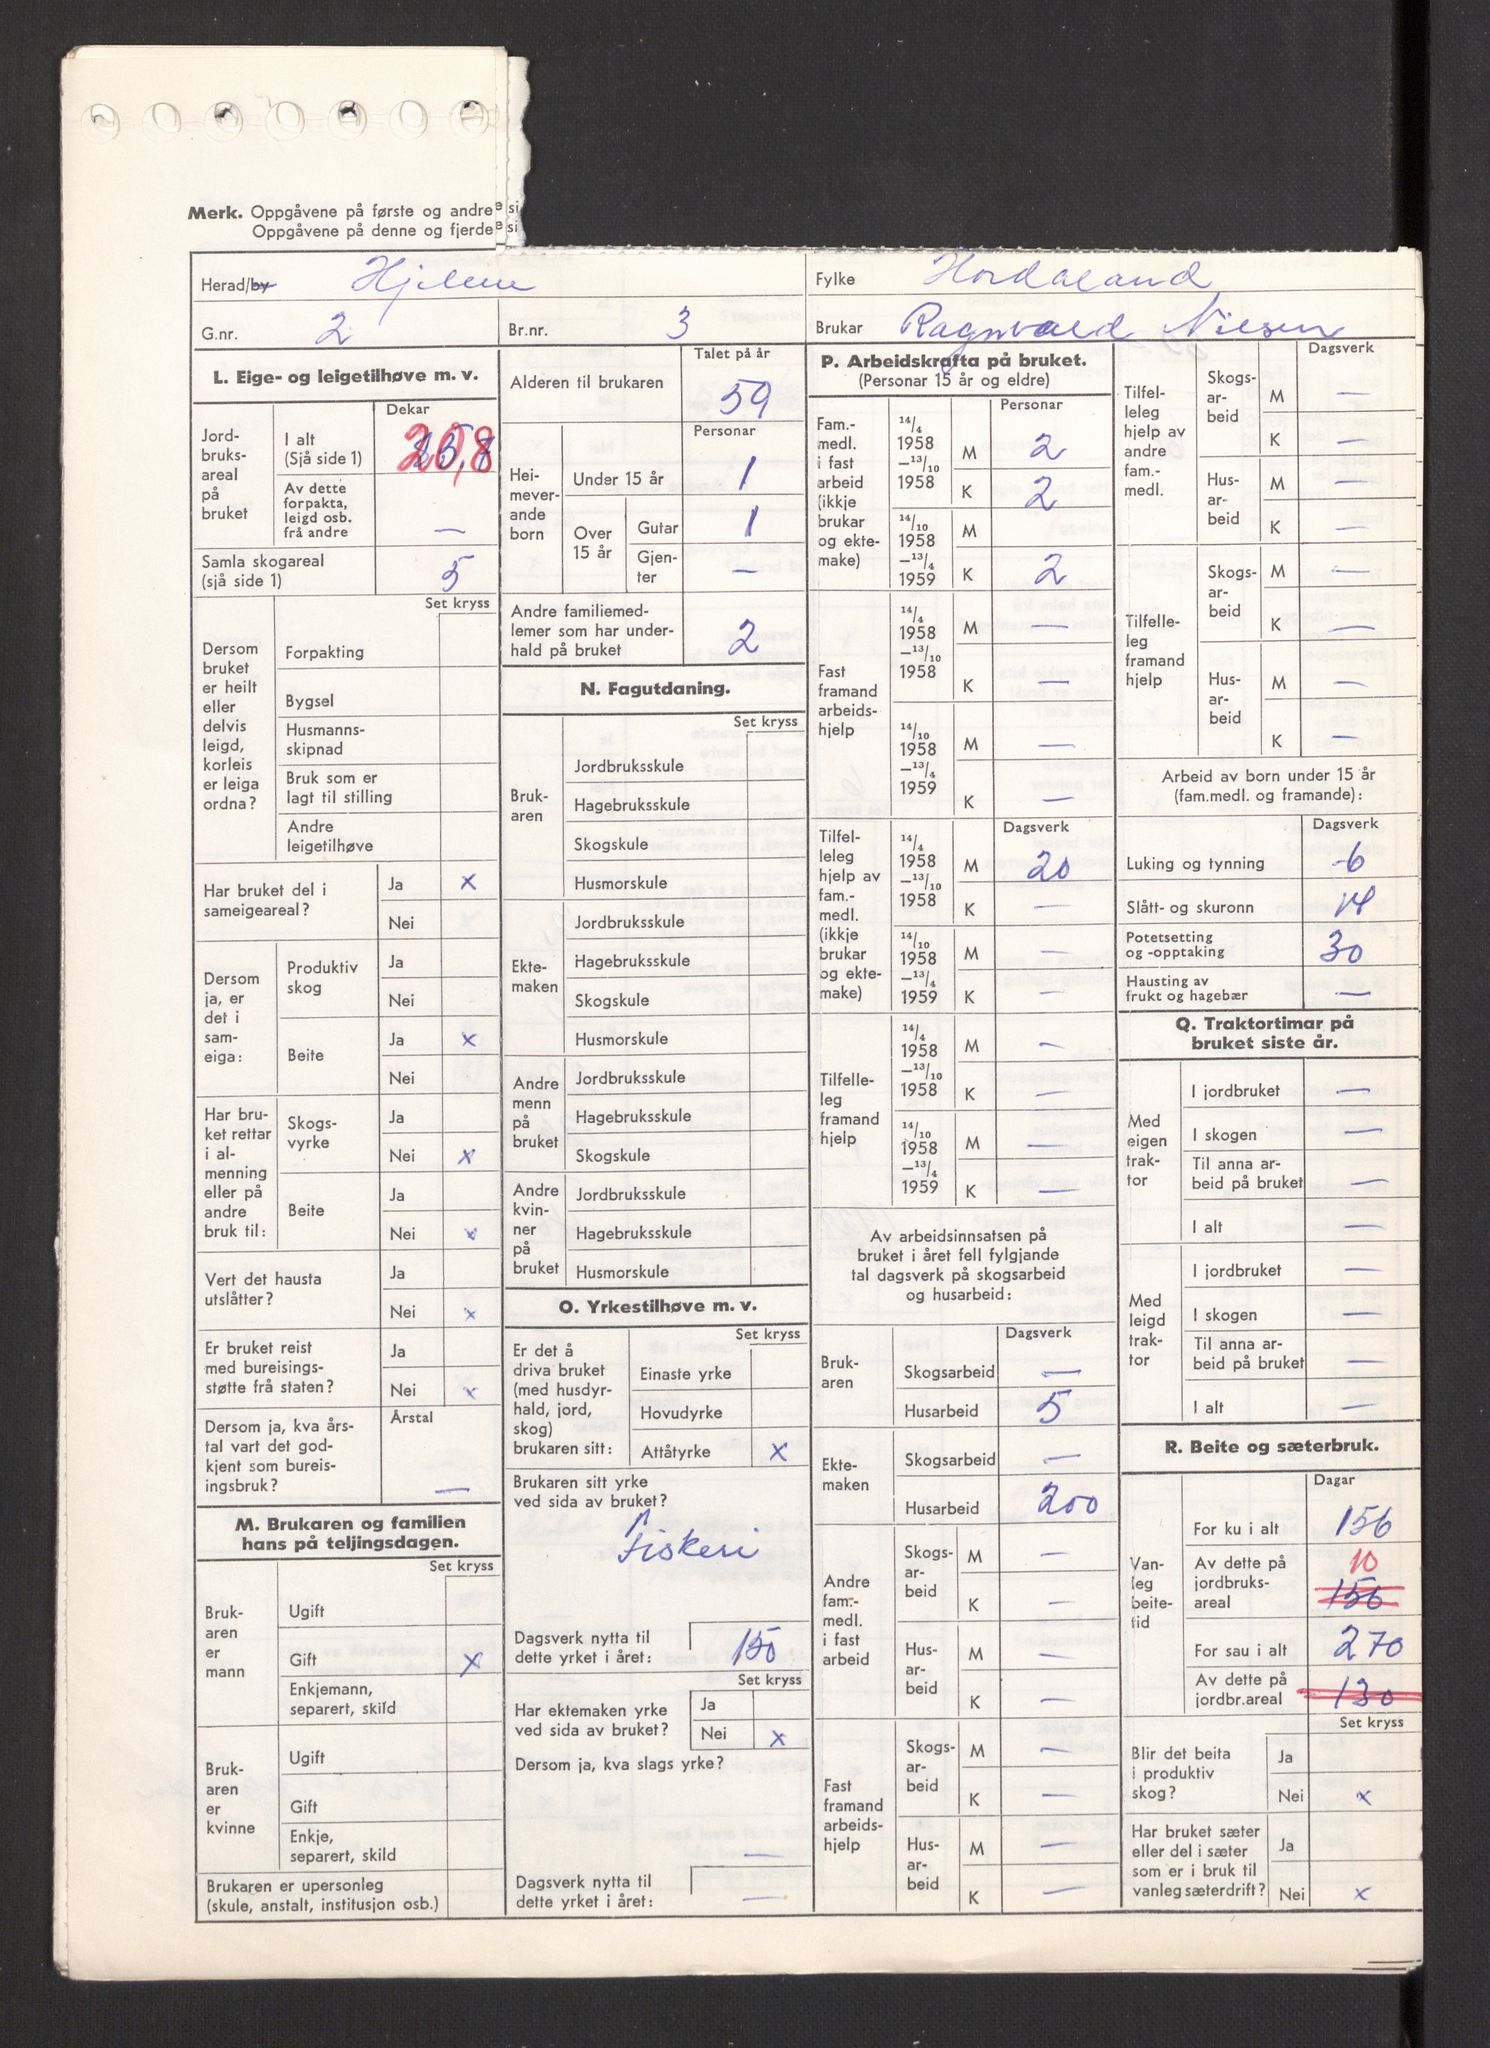 Merk. Oppgåvene på første og andre si
Oppgåvene på denne og fjerde si
Herad/by Hjelme
Fylke Hordaland
G.nr. 2
Br.nr. 3
Brukar Ragnvald Nilsen
L. Eige- og leigetilhøve m. v.
Dekar
Jord-
bruks-
areal
på
bruket
I alt
(Sjå side 1) 20,8
Av dette
forpakta,
leigd osb.
frå andre —
Samla skogareal
(sjå side 1) 5
Set kryss
Dersom
bruket
er heilt
eller
delvis
leigd,
korleis
er leiga
ordna?
Forpakting
Bygsel
Husmanns-
skipnad
Bruk som er
lagt til stilling
Andre
leigetilhøve
Har bruket del i
sameigeareal?
Ja x
Nei
Dersom
ja, er
det i
sam-
eiga:
Produktiv
skog
Ja
Nei
Beite
Ja x
Nei
Har bru-
ket rettar
i al-
menning
eller på
andre
bruk til:
Skogs-
vyrke
Ja
Nei x
Beite
Ja
Nei x
Vert det hausta
utslåtter?
Ja
Nei x
Er bruket reist
med bureisings-
støtte frå staten?
Ja
Nei x
Dersom ja, kva års-
tal vart det god-
kjent som bureis-
ingsbruk?
Årstal
—
M. Brukaren og familien
hans på teljingsdagen.
Set kryss
Bruk-
aren
er
mann
Ugift
Gift x
Enkjemann,
separert, skild
Bruk-
aren
er
kvinne
Ugift
Gift
Enkje,
separert, skild
Brukaren er upersonleg
(skule, anstalt, institusjon osb.)
Talet på år
Alderen til brukaren 59
Personar
Hei-
mever-
ande
born
Under 15 år 1
Over
15 år
Gutar 1
Gjen-
ter —
Andre familiemed-
lemer som har under-
hald på bruket 2
N. Fagutdaning.
Set kryss
Bruk-
aren
Jordbruksskule
Hagebruksskule
Skogskule
Husmorskule
Ekte-
maken
Jordbruksskule
Hagebruksskule
Skogskule
Husmorskule
Andre
menn
på
bruket
Jordbruksskule
Hagebruksskule
Skogskule
Andre
kvin-
ner
på
bruket
Jordbruksskule
Hagebruksskule
Husmorskule
O. Yrkestilhøve m. v.
Set kryss
Er det å
driva bruket
(med husdyr-
hald, jord,
skog)
brukaren sitt:
Einaste yrke
Hovudyrke
Attåtyrke x
Brukaren sitt yrke
ved sida av bruket?
Fiskeri
Dagsverk nytta til
dette yrket i året: 150
Set kryss
Har ektemaken yrke
ved sida av bruket?
Ja
Nei x
Dersom ja, kva slags yrke?
—
Dagsverk nytta til
dette yrket i året: —
P. Arbeidskrafta på bruket.
(Personar 15 år og eldre)
Personar
Fam.-
medl.
i fast
arbeid
(ikkje
brukar
og ekte-
make)
14/4
1958
—13/10
1958
M 2
K 2
14/10
1958
—13/4
1959
M
K 2
Fast
framand
arbeids-
hjelp
14/4
1958
—13/10
1958
M —
K —
14/10
1958
—13/4
1959
M —
K —
Dagsverk
Tilfel-
leleg
hjelp av
fam.-
medl.
(ikkje
brukar
og ekte-
make)
14/4
1958
—13/10
1958
M 20
K —
14/10
1958
—13/4
1959
M —
K —
Tilfelle-
leg
framand
hjelp
14/4
1958
—13/10
1958
M —
K —
14/10
1958
—13/4
1959
M —
K —
Av arbeidsinnsatsen på
bruket i året fell fylgjande
tal dagsverk på skogsarbeid
og husarbeid:
Dagsverk
Bruk-
aren
Skogsarbeid —
Husarbeid 5
Ekte-
maken
Skogsarbeid —
Husarbeid 200
Andre
fam.-
medl.
i fast
arbeid
Skogs-
ar-
beid
M —
K —
Hus-
ar-
beid
M —
K —
Fast
framand
arbeids-
hjelp
Skogs-
ar-
beid
M —
K —
Hus-
ar-
beid
M —
K —
Dagsverk
Tilfel-
leleg
hjelp av
andre
fam.-
medl.
Skogs-
ar-
beid
M —
K —
Hus-
ar-
beid
M —
K —
Tilfelle-
leg
framand
hjelp
Skogs-
ar-
beid
M —
K —
Hus-
ar-
beid
M —
K —
Arbeid av born under 15 år
(fam.medl. og framande):
Dagsverk
Luking og tynning 6
Slått- og skuronn 14
Potetsetting
og -opptaking 30
Hausting av
frukt og hagebær —
Q. Traktortimar på
bruket siste år.
Med
eigen
trak-
tor
I jordbruket —
I skogen —
Til anna ar-
beid på bruket —
I alt —
Med
leigd
trak-
tor
I jordbruket —
I skogen —
Til anna ar-
beid på bruket —
I alt —
R. Beite og sæterbruk.
Dagar
Van-
leg
beite-
tid
For ku i alt 156
Av dette på
jordbruks-
areal
10
156
For sau i alt 270
Av dette på
jordbr.areal 130
Set kryss
Blir det beita
i produktiv
skog?
Ja
Nei x
Har bruket sæter
eller del i sæter
som er i bruk til
vanleg sæterdrift?
Ja
Nei x